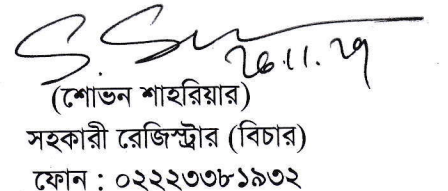 26.11.25
(শোভন শাহরিয়ার)
সহকারী রেজিস্ট্রার (বিচার)
ফোন : ০২২২৩৩৮১৯৩২